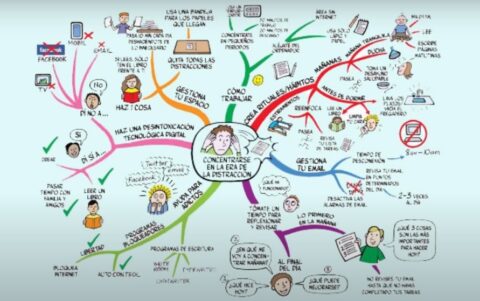 CONCENTRARSE
EN LA ERA
DE LA
DISTRACCIÓN
CREA RITUALES/HÁBITOS
MAÑANAS
MEDITA
LEE
ESCRIBE
PÁGINAS
MATUTINAS
DUCHA
TOMA UN
DESAYUNO
SALUDABLE
ANTES DE DORMIR
LIMPIA
LEE UN
LIBRO
REENFOCA
PASEA
REVISA
TU LISTA
ESTIRAMIENTOS
GESTIONA
TU EMAIL
TIEMPO DE
DESCONEXIÓN
8am - 10am
REVISA TU EMAIL
EN PUNTOS
DETERMINADOS DEL
DÍA
2-3 VECES
AL DÍA
DESACTIVA LAS
ALARMAS DE EMAIL
TÓMATE UN
TIEMPO PARA
REFLEXIONAR
Y REVISAR
LO PRIMERO
EN LA MAÑANA
¿QUÉ 3 COSAS
SON LAS MÁS
IMPORTANTES
PARA HACER
HOY?
NO REVISES TU EMAIL
HASTA QUE NO HAYAS
COMPLETADO TUS TAREAS
AL FINAL
DEL DÍA
¿QUÉ
HA
FUNCIONADO?
¿EN QUÉ
ME VOY A
CONCENTRAR
MAÑANA?
¿QUÉ HICE
HOY?
¿QUÉ
PUEDE
MEJORARSE?
AYUDA PARA
ADICTOS
Twitter
Facebook
email
PROGRAMAS
BLOQUEADORES
LIBERTAD
BLOQUEA
INTERNET
AUTO CONTROL
PROGRAMAS DE ESCRITURA
WHITE
ROOM
DARKROOM
HAZ UNA DESINTOXICACIÓN
TECNOLÓGICA DIGITAL
DI NO A...
No
TV
FACEBOOK
MOBIL
EMAIL
DI SÍ A...
Sí
CREAR
PASAR
TIEMPO
CON
FAMILIA Y
AMIGOS
LEER UN
LIBRO
GESTIONA
TU ESPACIO
HAZ 1 COSA
SI LEES, SÓLO
TEN EL LIBRO
FRENTE A TI
QUITA TODAS LAS
DISTRACCIONES
USA UNA BANDEJA
PARA LOS PAPELES
QUE LLEGAN
CÓMO
TRABAJAR
CONCÉNTRATE
EN PEQUEÑOS
PERIODOS
ALÉJATE DEL
ORDENADOR
ÁREA SIN
INTERNET